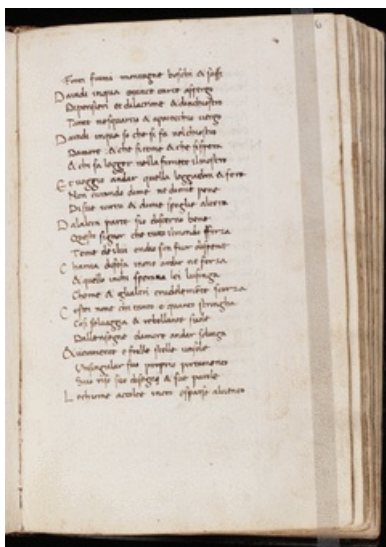 Fiumi fontane montagne boschi & sassi
D a indi inqua cotante carte aspergo
Dipensieri et dilacrime & dinchiostro
Tante nesquarcio & aparecchio vergo
D a indi inqua so che si fa nel chiostro
Damore & che siteme & che sispera
A chi sa legger nella fronte ilmostro
E t veggio andar quella leggiadra fera
Non curando dime ne dimie pene
Di sue & dimie spoglie altera
D alaltra parte sio discerno bene
Questo signor che tutto ilmondo sforza
Teme dilei ondio son fuor dispene
C ha mia difesa non ardir ne forza
& quello inchio sperava lei lusinga
Cheme & glialtri crudelmente scorza
C ostei none chi tanto o quanto stringha
Cosi selvaggia & rebellante suole
Dallensegne damore andar solinga
& veramente e fralle stelle unsole
Unsingular suo proprio portamento
Suo riso suo disdegni & sue parole
L e chiome accolte inoro osparse alvento
6